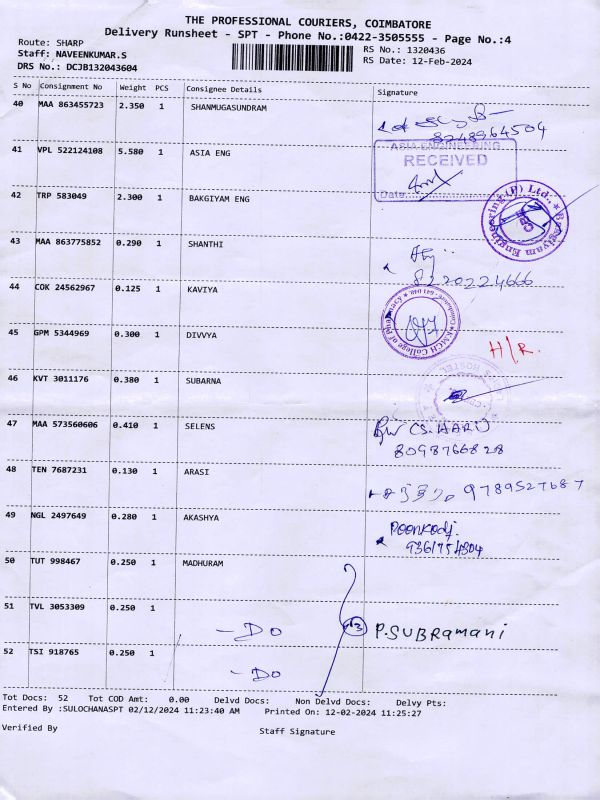 THE PROFESSIONAL COURIERS, COIMBATORE
Delivery Runsheet - SPT - Phone No.:0422-3505555 - Page No.:4
Route: SHARP
Staff: NAVEENKUMAR.S
DRS No.: DCJB132043604
RS No.: 1320436
RS Date: 12-Feb-2024
S No Consignment No Weight PCS Consignee Details Signature
40 MAA 863455723 2.350 1 SHANMUGASUNDRAM
8248964504
41 VPL 522124108 5.580 1 ASIA ENG
ASIA ENGINEERING
RECEIVED
Date
42 TRP 583049 2.300 1 BAKGIYAM ENG
Bakgiyam Engineering (P) Ltd.,
43 MAA 863775852 0.290 1 SHANTHI
8220224666
44 COK 24562967 0.125 1 KAVIYA
KMCH College of Pharmacy
45 GPM 5344969 0.300 1 DIVVYA
H/R.
46 KVT 3011176 0.380 1 SUBARNA
47 MAA 573560606 0.410 1 SELENS
(S. HARI)
8098766828
48 TEN 7687231 0.130 1 ARASI
9789527687
49 NGL 2497649 0.280 1 AKASHYA
Poonkodi.
9361754304
50 TUT 998467 0.250 1 MADHURAM
51 TVL 3053309 0.250 1
- Do P. SUBRamani
52 TSI 918765 0.250 1
- Do
Tot Docs: 52 Tot COD Amt: 0.00 Delvd Docs: Non Delvd Docs: Delvy Pts:
Entered By :SULOCHANASPT 02/12/2024 11:23:40 AM Printed On: 12-02-2024 11:25:27
Verified By Staff Signature